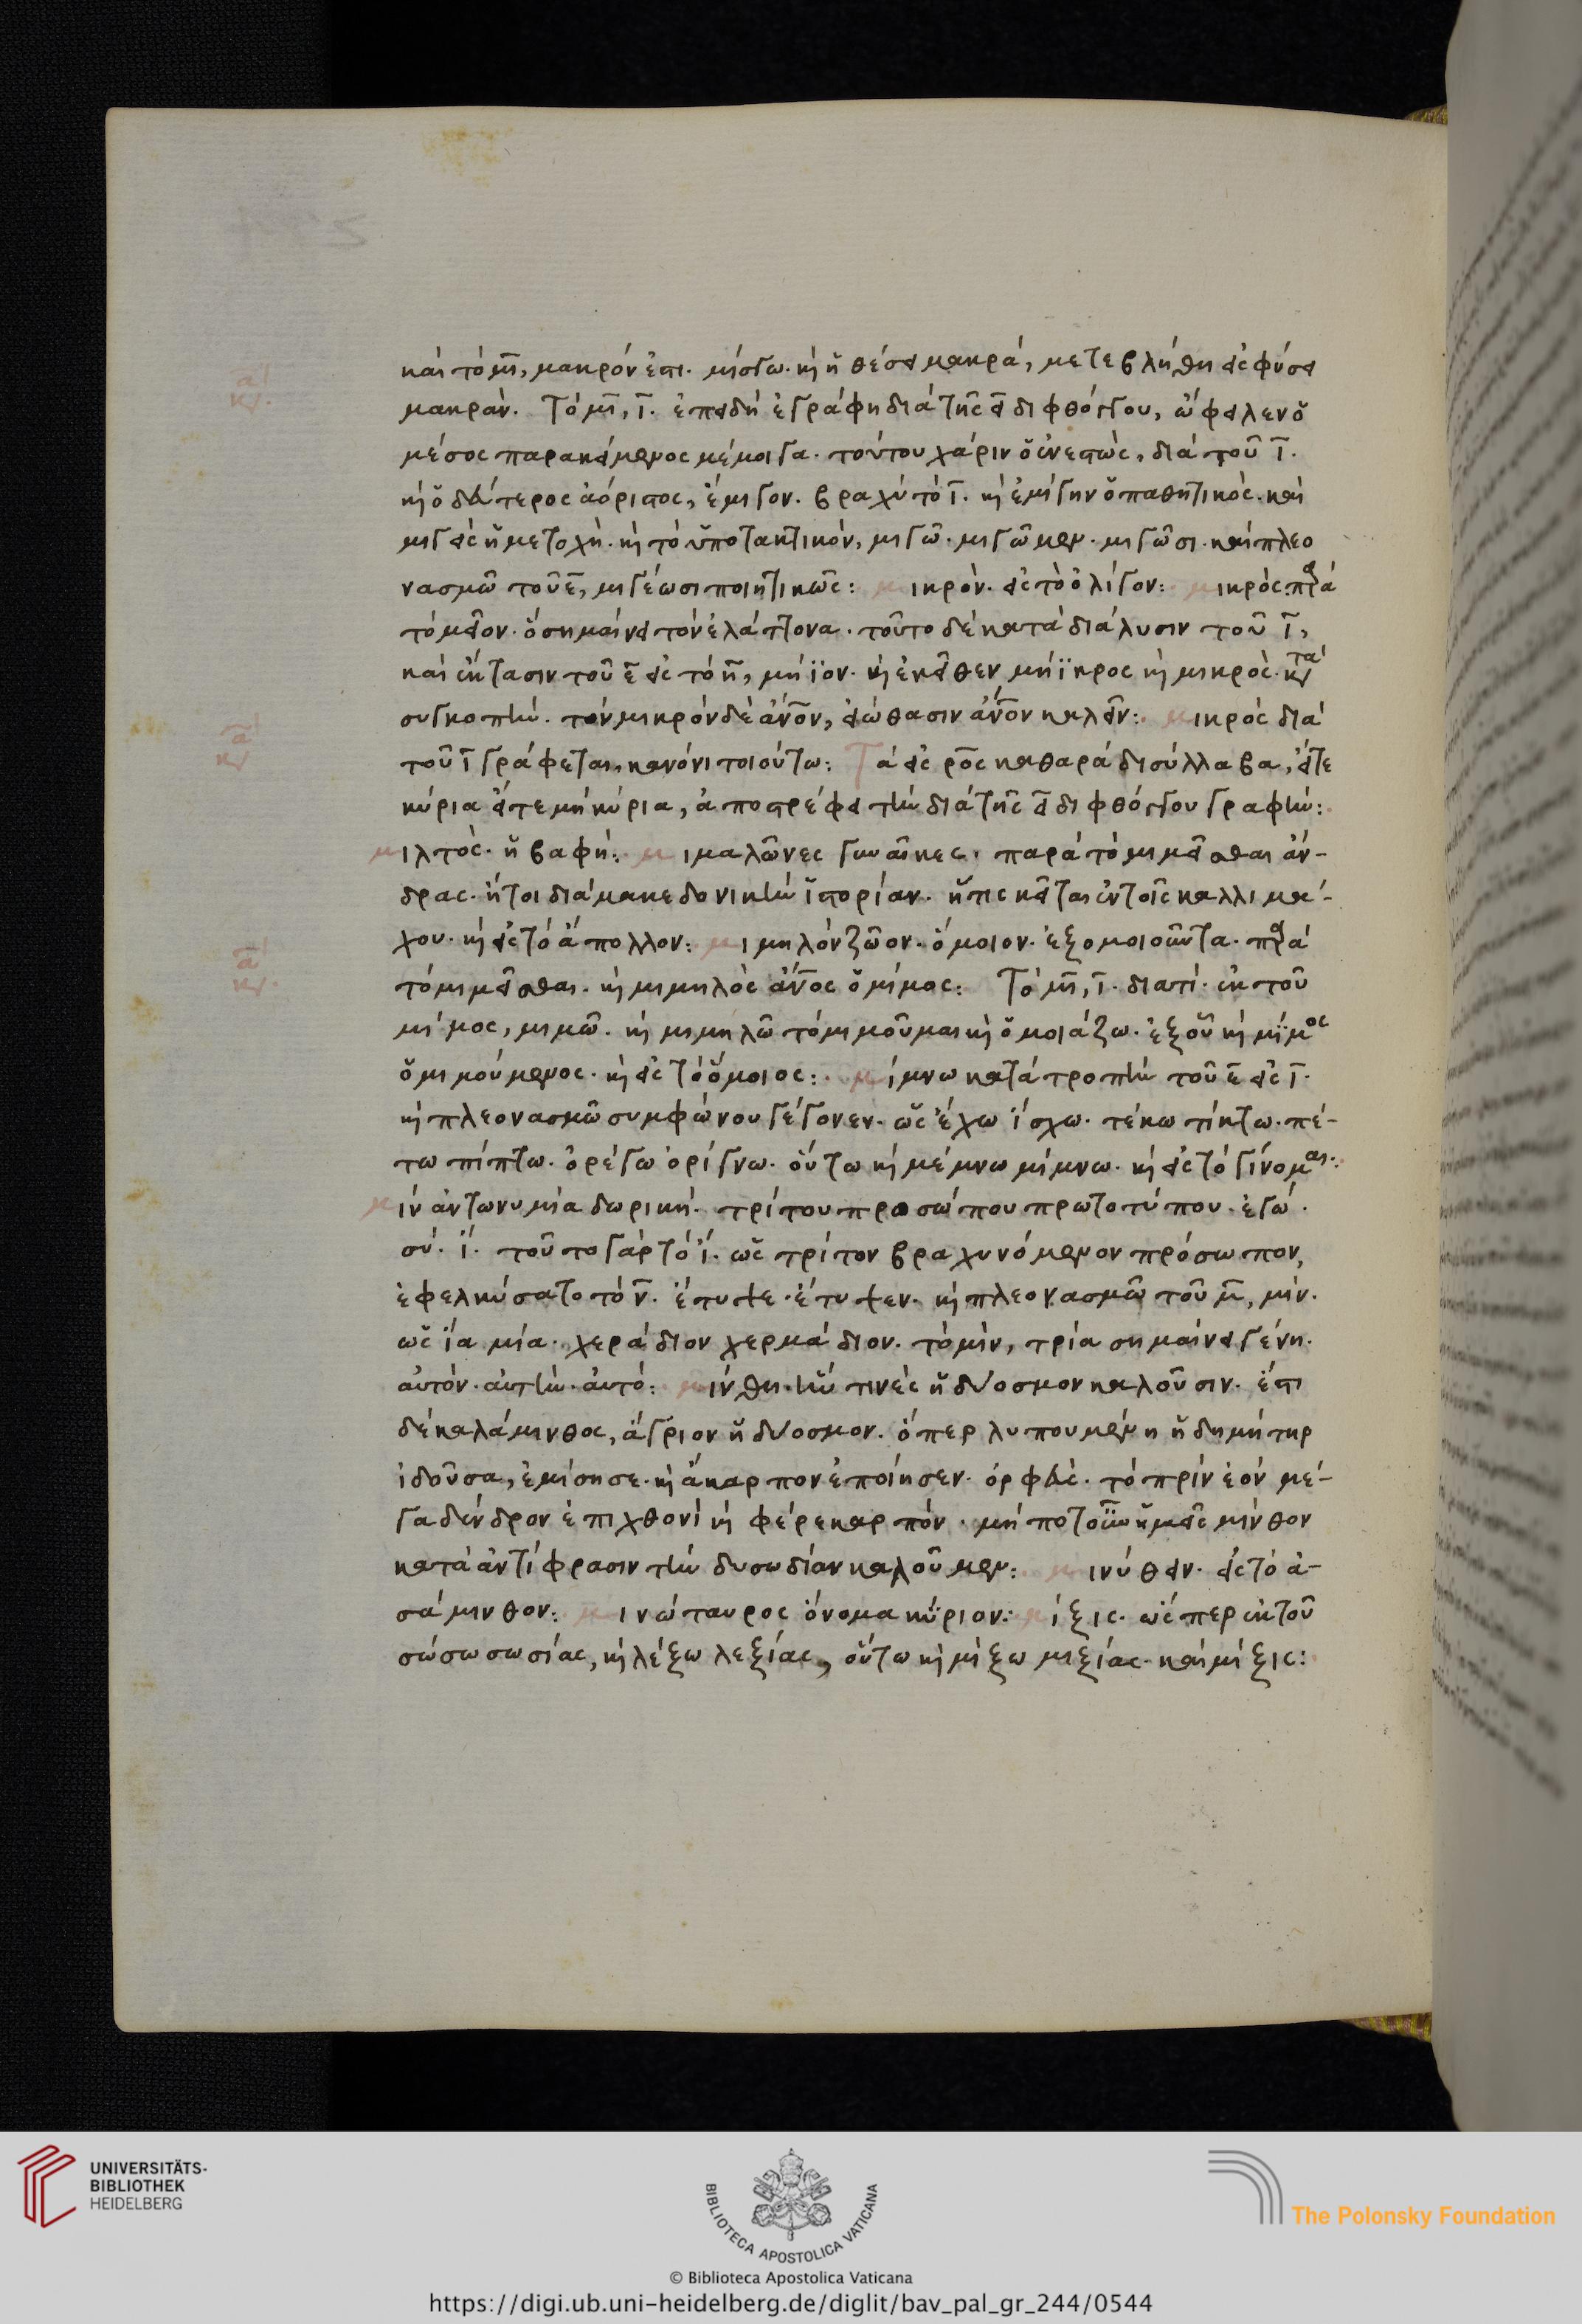 καὶ τὸ μῑ, μακρόν ἐστι. μίσγω. κὶ ἡ θέσει μακρὰ, μετεβλήθη εἰς φύσει
μακράν. Τὸ μῑ, ῑ. ἐπειδὴ ἐγράφη διὰ τῆς ει διφθόγγου, ὤφειλεν ὁ
μέσος παρακείμενος μέμοιγα. τούτου χάριν ὁ ἐνεστὼς, διὰ τοῦ ῑ.
κὶ ὁ δεύτερος ἀόριστος, ἔμιγον. βραχὺ τὸ ῑ. κὶ ἐμίγην ὁ παθητικός. καὶ
μιγεὶς ἡ μετοχή. κὶ τὸ ὑποτακτικὸν, μιγῶ. μιγῶμεν. μιγῶσι. καὶ πλεο
νασμῶ τοῦ ε̄, μιγέωσι ποιητικῶς: μικρόν. εἰς τὸ ὀλίγον: μικρός. παρὰ
τὸ μεῖον. ὁ σημαίνει τὸν ἐλάττονα. τοῦτο δὲ κατὰ διάλυσιν τοῦ ῑ,
καὶ ἔκτασιν τοῦ ε̄ εἰς τὸ η̄, μήϊον. κὶ ἐκεῖθεν μήϊκρος κὶ μικρός. κατὰ
συγκοπὴν. τὸν μικρὸν δὲ ἄνον, εἰώθασιν ἄνον καλεῖν: μικρὸς διὰ
τοῦ ῑ γράφεται, κανόνι τοιούτω: Τὰ εἰς ρος καθαρὰ δισύλλαβα, εἴτε
κύρια εἴτε μὴ κύρια, ἀποστρέφει τὴν διὰ τῆς ει διφθόγγου γραφήν:
μιλτός. ἡ βαφή: μιμαλῶνες γυναῖκες. παρὰ τὸ μιμεῖσθαι ἄν-
δρας. ἤτοι διὰ μακεδονικὴν ἱστορίαν. ἥτις κεῖται ἐν τοῖς καλλιμά-
χου. κὶ εἰς τὸ ἄπολλον: μιμηλὸν ζῶον. ὅμοιον. ἐξομοιοῦντα. παρὰ
τὸ μιμεῖσθαι. κὶ μιμηλὸς ἄνος ὁ μίμος: Τὸ μῑ, ῑ. διατί. ἐκ τοῦ
μίμος, μιμῶ. κὶ μιμηλῶ τὸ μιμοῦμαι κὶ ὁμοιάζω. ἐξ οὗ κὶ μίμος
ὁ μιμούμενος. κὶ εἰς τὸ ὅμοιος: μίμνω κατὰ τροπὴν τοῦ ε̄ εἰς ῑ.
κὶ πλεονασμῶ συμφώνου γέγονεν. ὡς ἔχω ἴσχω. τέκω τίκτω. πέ-
τω πίπτω. ὀρέγω ὀρίγνω. οὕτω κὶ μέμνω μίμνω. κὶ εἰς τὸ γίνομαι:
μίν ἀντωνυμία δωρική. τρίτου προσώπου πρωτοτύπου. ἐγώ.
σύ. ἵ. τοῦτο γὰρ τὸ ἵ. ὡς τρίτον βραχυνόμενον πρόσωπον,
ἐφελκύσατο τὸ ν̄. ἔτυψε. ἔτυψεν. κὶ πλεονασμῶ τοῦ μ̄, μίν.
ὡς ἴα μία. χεράδιον χερμάδιον. τὸ μὶν, τρία σημαίνει γένη.
αὐτόν. αὐτὴν. αὐτό: μίνθη. ἣν τινὲς ἡδύοσμον καλοῦσιν. ἔστι
δὲ καλάμινθος, ἄγριον ἡδύοσμον. ὅπερ λυπουμένη ἡ δημήτηρ
ἰδοῦσα, ἐμίσησε. κὶ ἄκαρπον ἐποίησεν. ὀρφεύς. τὸ πρὶν ἐὸν μέ-
γα δένδρον ἐπιχθονὶ κὶ φερέκαρπόν. μήποτ οὖν ἡμεῖς μίνθον
κατὰ ἀντίφρασιν τὴν δυσωδίαν καλοῦμεν: μινύθειν. εἰς τὸ ἀ-
σάμινθον: μινώταυρος ὄνομα κύριον: μίξις. ὥσπερ ἐκ τοῦ
σώσω σωσίας, κὶ λέξω λεξίας, οὕτω κὶ μίξω μιξίας. καὶ μίξις:
UNIVERSITÄTS-
BIBLIOTHEK
HEIDELBERG
BIBLIOTECA APOSTOLICA VATICANA
The Polonsky Foundation
© Biblioteca Apostolica Vaticana
https://digi.ub.uni-heidelberg.de/diglit/bav_pal_gr_244/0544